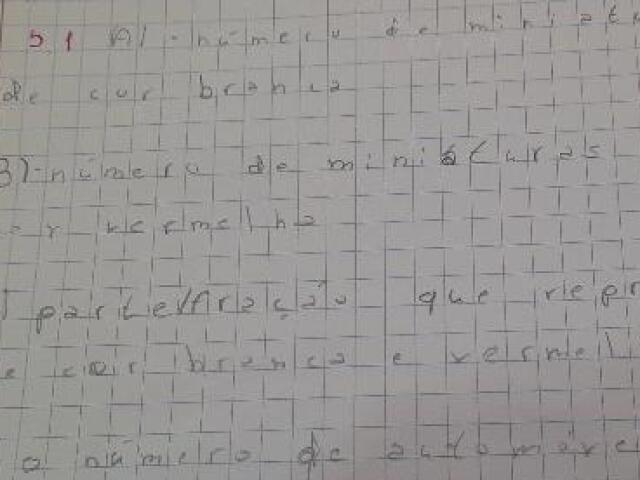 5.1 A) - número de miniat
de cor branca
B) - número de miniaturas
or vermelha
) parte/fração que repr
e cor branca e vermel
o número de automove